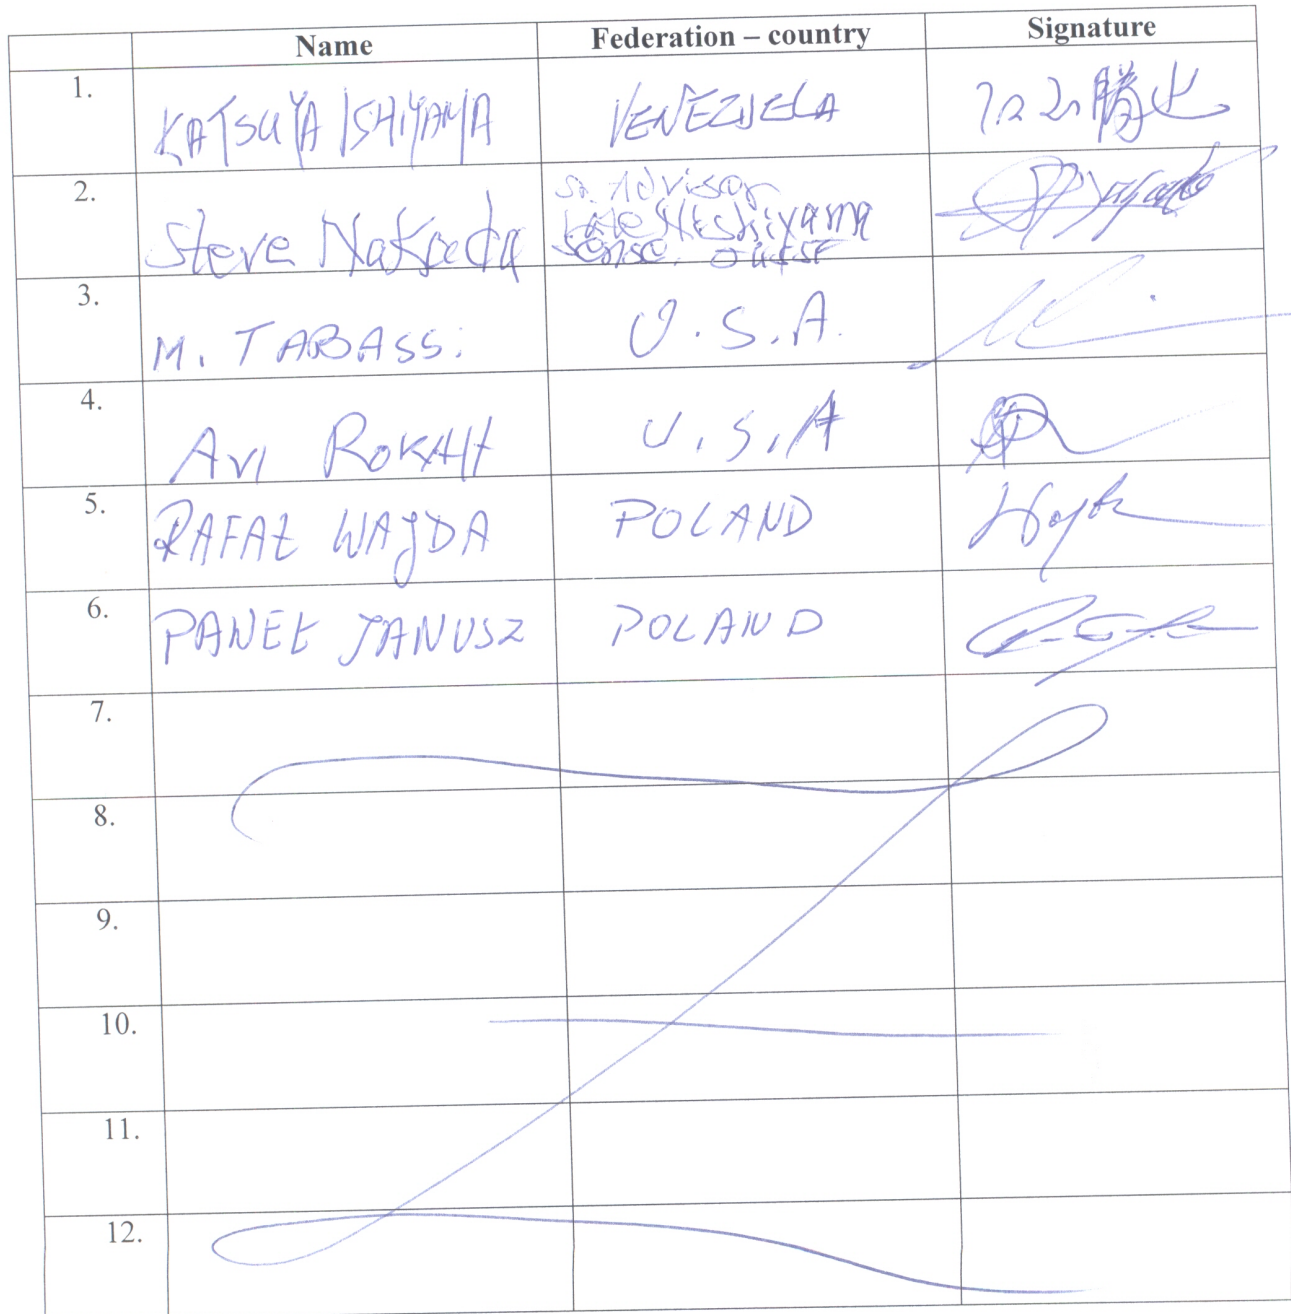 Name Federation – country Signature
1. KATSUYA ISHIYAMA VENEZUELA 石山勝也
2. Steve Nakada Sr. Advisor
Late Nishiyama
Sense.
3. M. TABASSI U.S.A.
4. AVI ROKAH U.S.A
5. RAFAŁ WAJDA POLAND
6. PAWEŁ JANUSZ POLAND
7.
8.
9.
10.
11.
12.